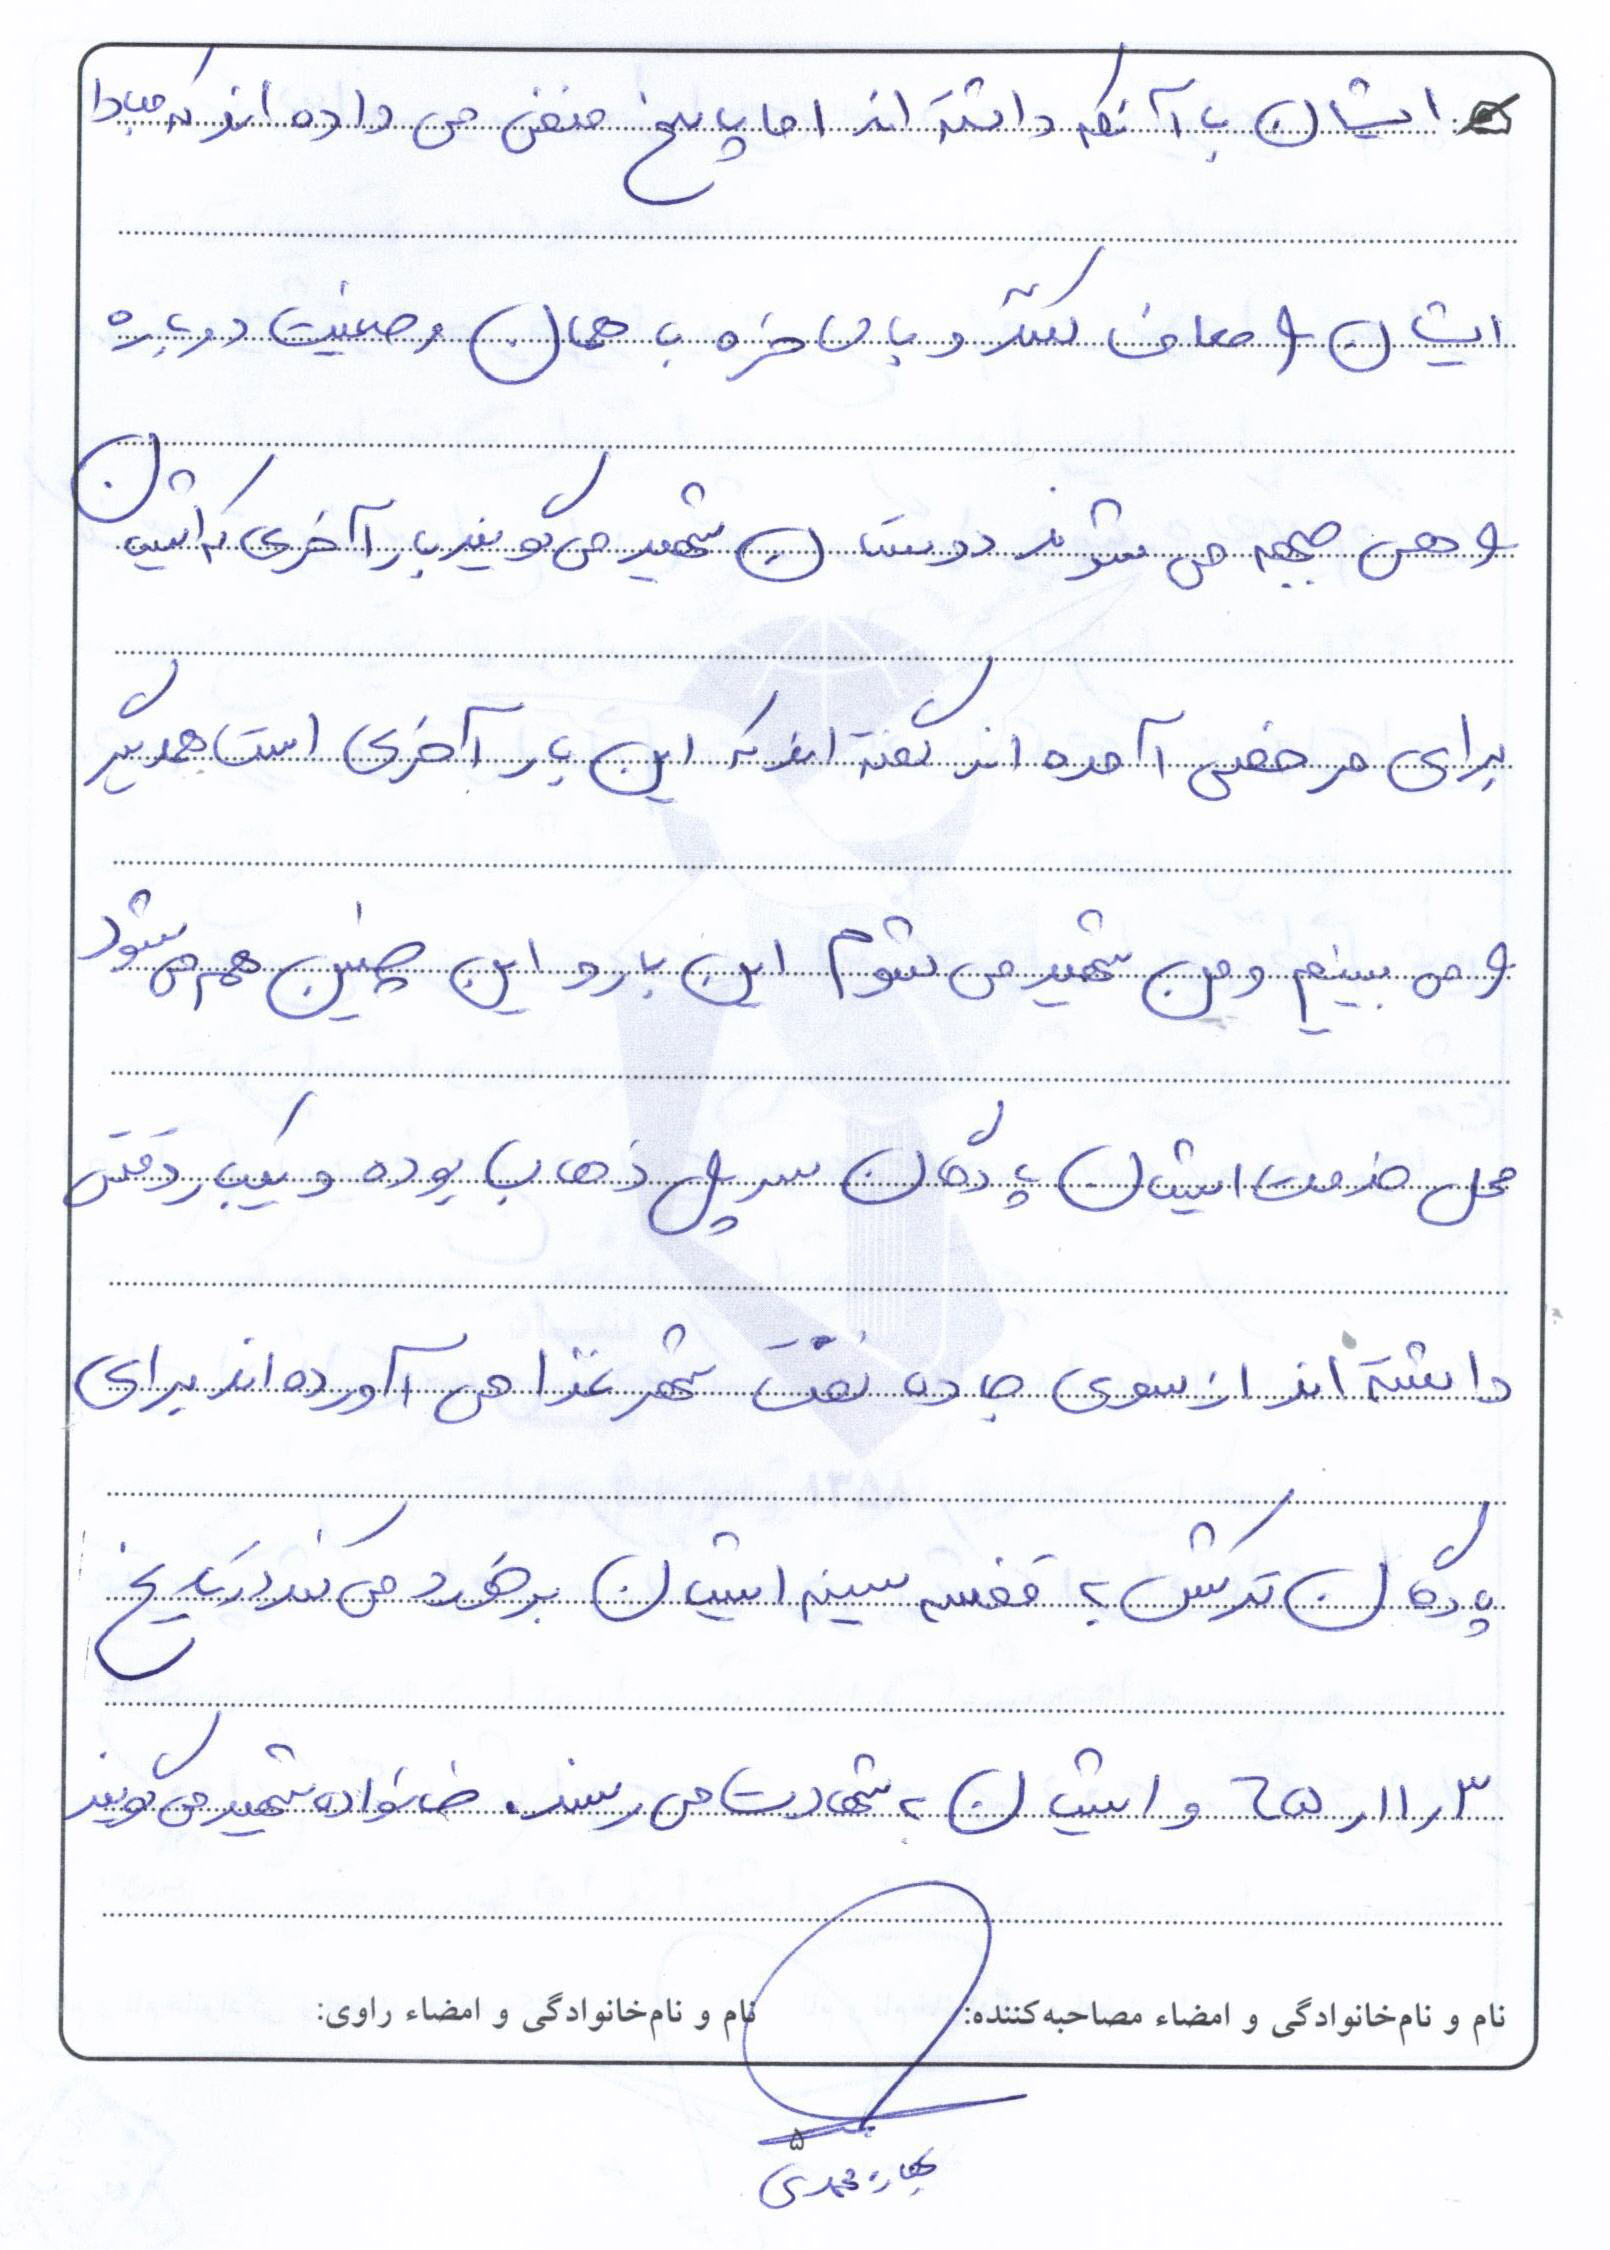 ایشان با آنکه داشته اند اما پاسخ منفی می داده اند که مبادا
ایشان را معاف کنند و بالاخره با همان وضعیت دوباره
راهی جبهه می شوند دوستان شهید می گویند بار آخری که ایشان
برای مرخصی آمده اند گفته اند که این بار آخری است همدیگر
را می بینیم و من شهید می شوم این بار و این چنین هم می شود
محل خدمت ایشان پادگان سرپل ذهاب بوده و یکبار
داشته اند از سوی جاده نفت شهر غذا می آورده اند برای
پادگان ترکش به قفسه سینه ایشان برخورد می کند در تاریخ
۳ر۱۱ر۶۵ و ایشان به شهادت می رسند. خانواده شهید می گویند
نام و نام‌خانوادگی و امضاء مصاحبه‌کننده: نام و نام‌خانوادگی و امضاء راوی:
۵
محمدی